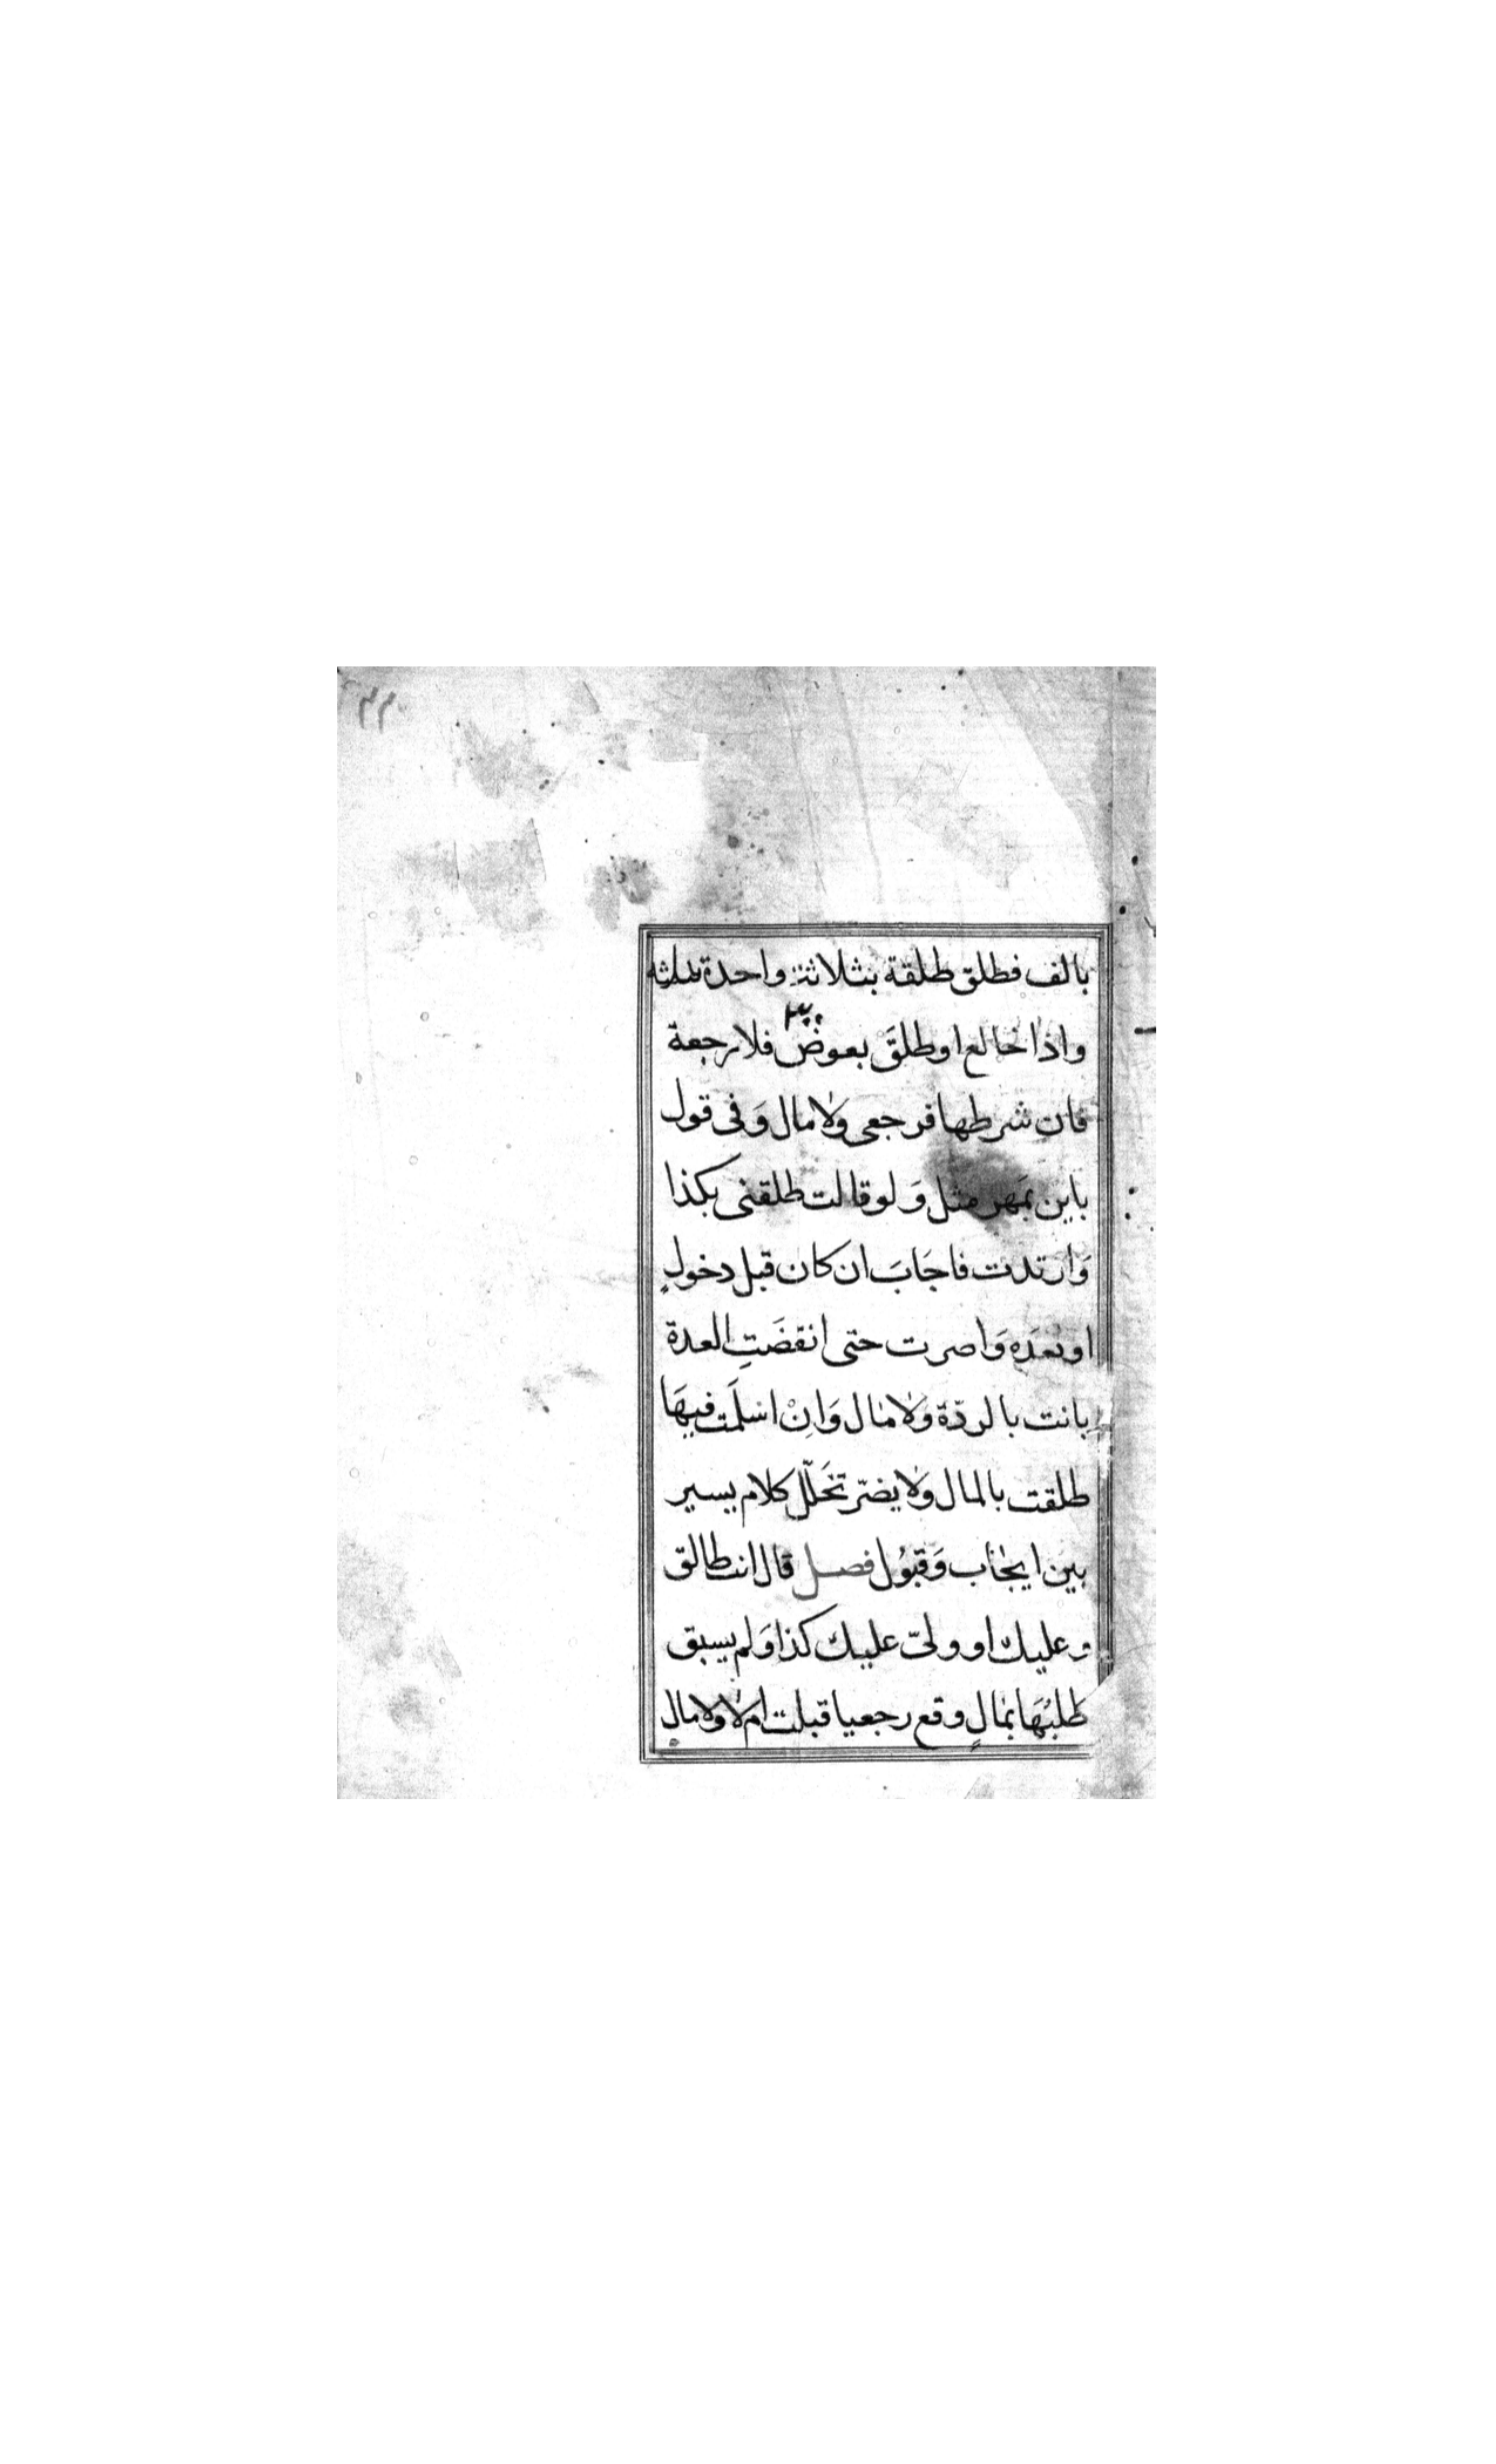 ٢٣
بالف فطلق طلقة بثلاثة واحدة بثلثه
واذا خالع اوطلقَ بعوض فلا رجعة
فان شرطها فرجعى ولا مال وَفى قول
باين بمَهر مثل وَلو قالت طلقنى بكذا
وَارتدت فاجَابَ ان كان قبل دخولٍ
او بعدَه وَاصرت حتى انقضَتِ العدة
بانت بالردّة وَلا مال وَانْ اسْلمَت فيهَا
طلقت بالمال ولا يضرّ تخَلّل كلام يسير
بين ايجاب وَقبُول فصل قال انت طالق
وعليك او ولىّ عليك كذا وَلم يسبق
طلبُهَا بمَالٍ وقع رجعيا قبلت ام لا ولا مال